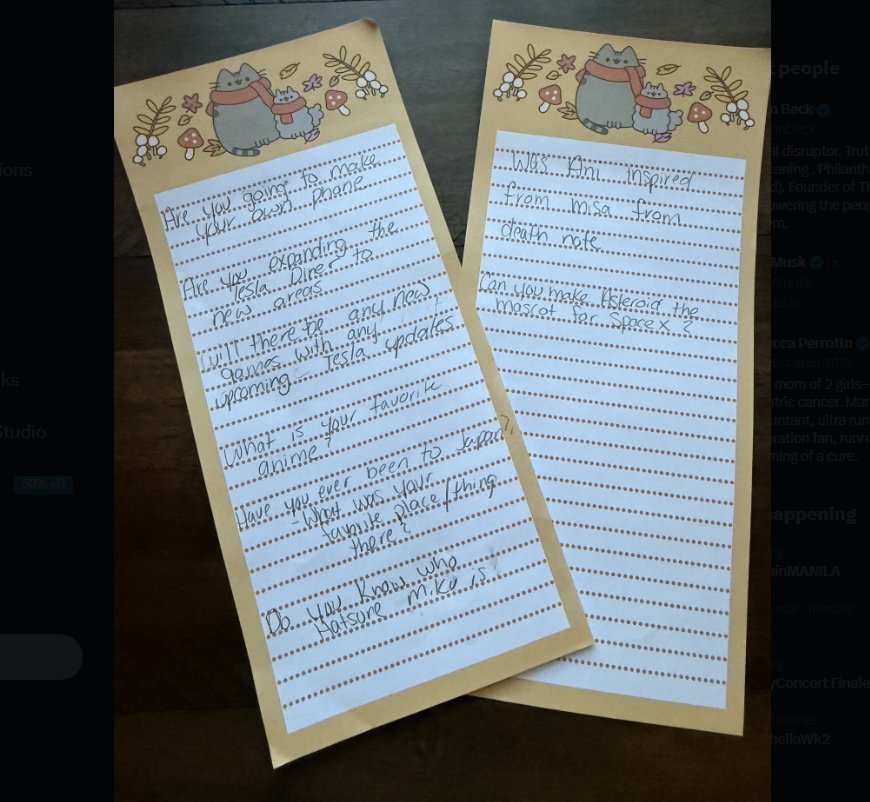 Are you going to make
your own phone
Are you expanding the
Tesla Diner to
new areas
will there be any new
games with any
upcoming Tesla updates
What is your favorite
anime?
Have you ever been to Japan?
-What was your
favorite place/thing
there?
Do you know who
Hatsune miku is
Was Ani inspired
from misa from
death note
Can you make Asteroid the
mascot for SpaceX ?
ions
ks
Studio
50% off
t people
n Beck
nnbeck
al disruptor. Trut
eaning . Philanth
d). Founder of T
owering the peop
m.
Musk
nmusk
ab.ai
cca Perrotto
eccaperrotto
mom of 2 girls—
atric cancer. Mar
untant, ultra run
ration fan, runn
ning of a cure.
appening
ng
ninMANILA
ance · Trending
ng
yConcert Finale
ilippines
hellaWk2